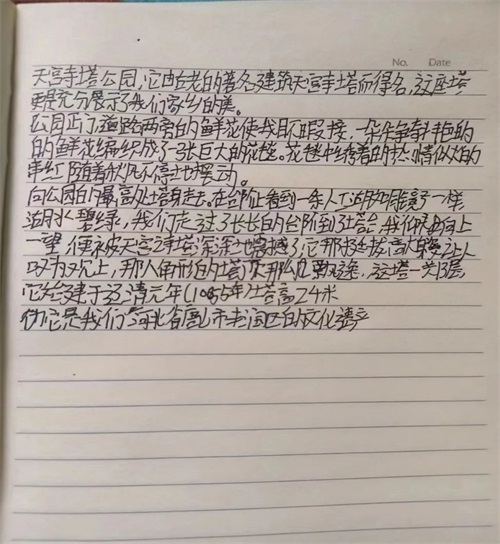 No. Date
天宫寺塔公园,它由古老的著名建筑天宫寺塔而得名,这座塔
更是充分展示了我们家乡的美。
公园正门道路两旁的鲜花使我目不暇接,一朵朵争奇斗艳的
的鲜花编织成了一张巨大的花毯。花毯中绣着的热情似火的
串红随着秋风不停地摆动。
向公园的最高处塔身走去,在台阶上看到一条人工湖如
湖水碧绿,我们走过了长长的台阶到了塔台,我仰头向上
一望 便被天宫寺塔深深地震撼了它那挺拔高大
叹为观止,那八角的塔顶那么 这塔一共13层,
它始建于辽清元年(1056年)塔高24米
它是我们河北省唐山市丰润区的文化遗产